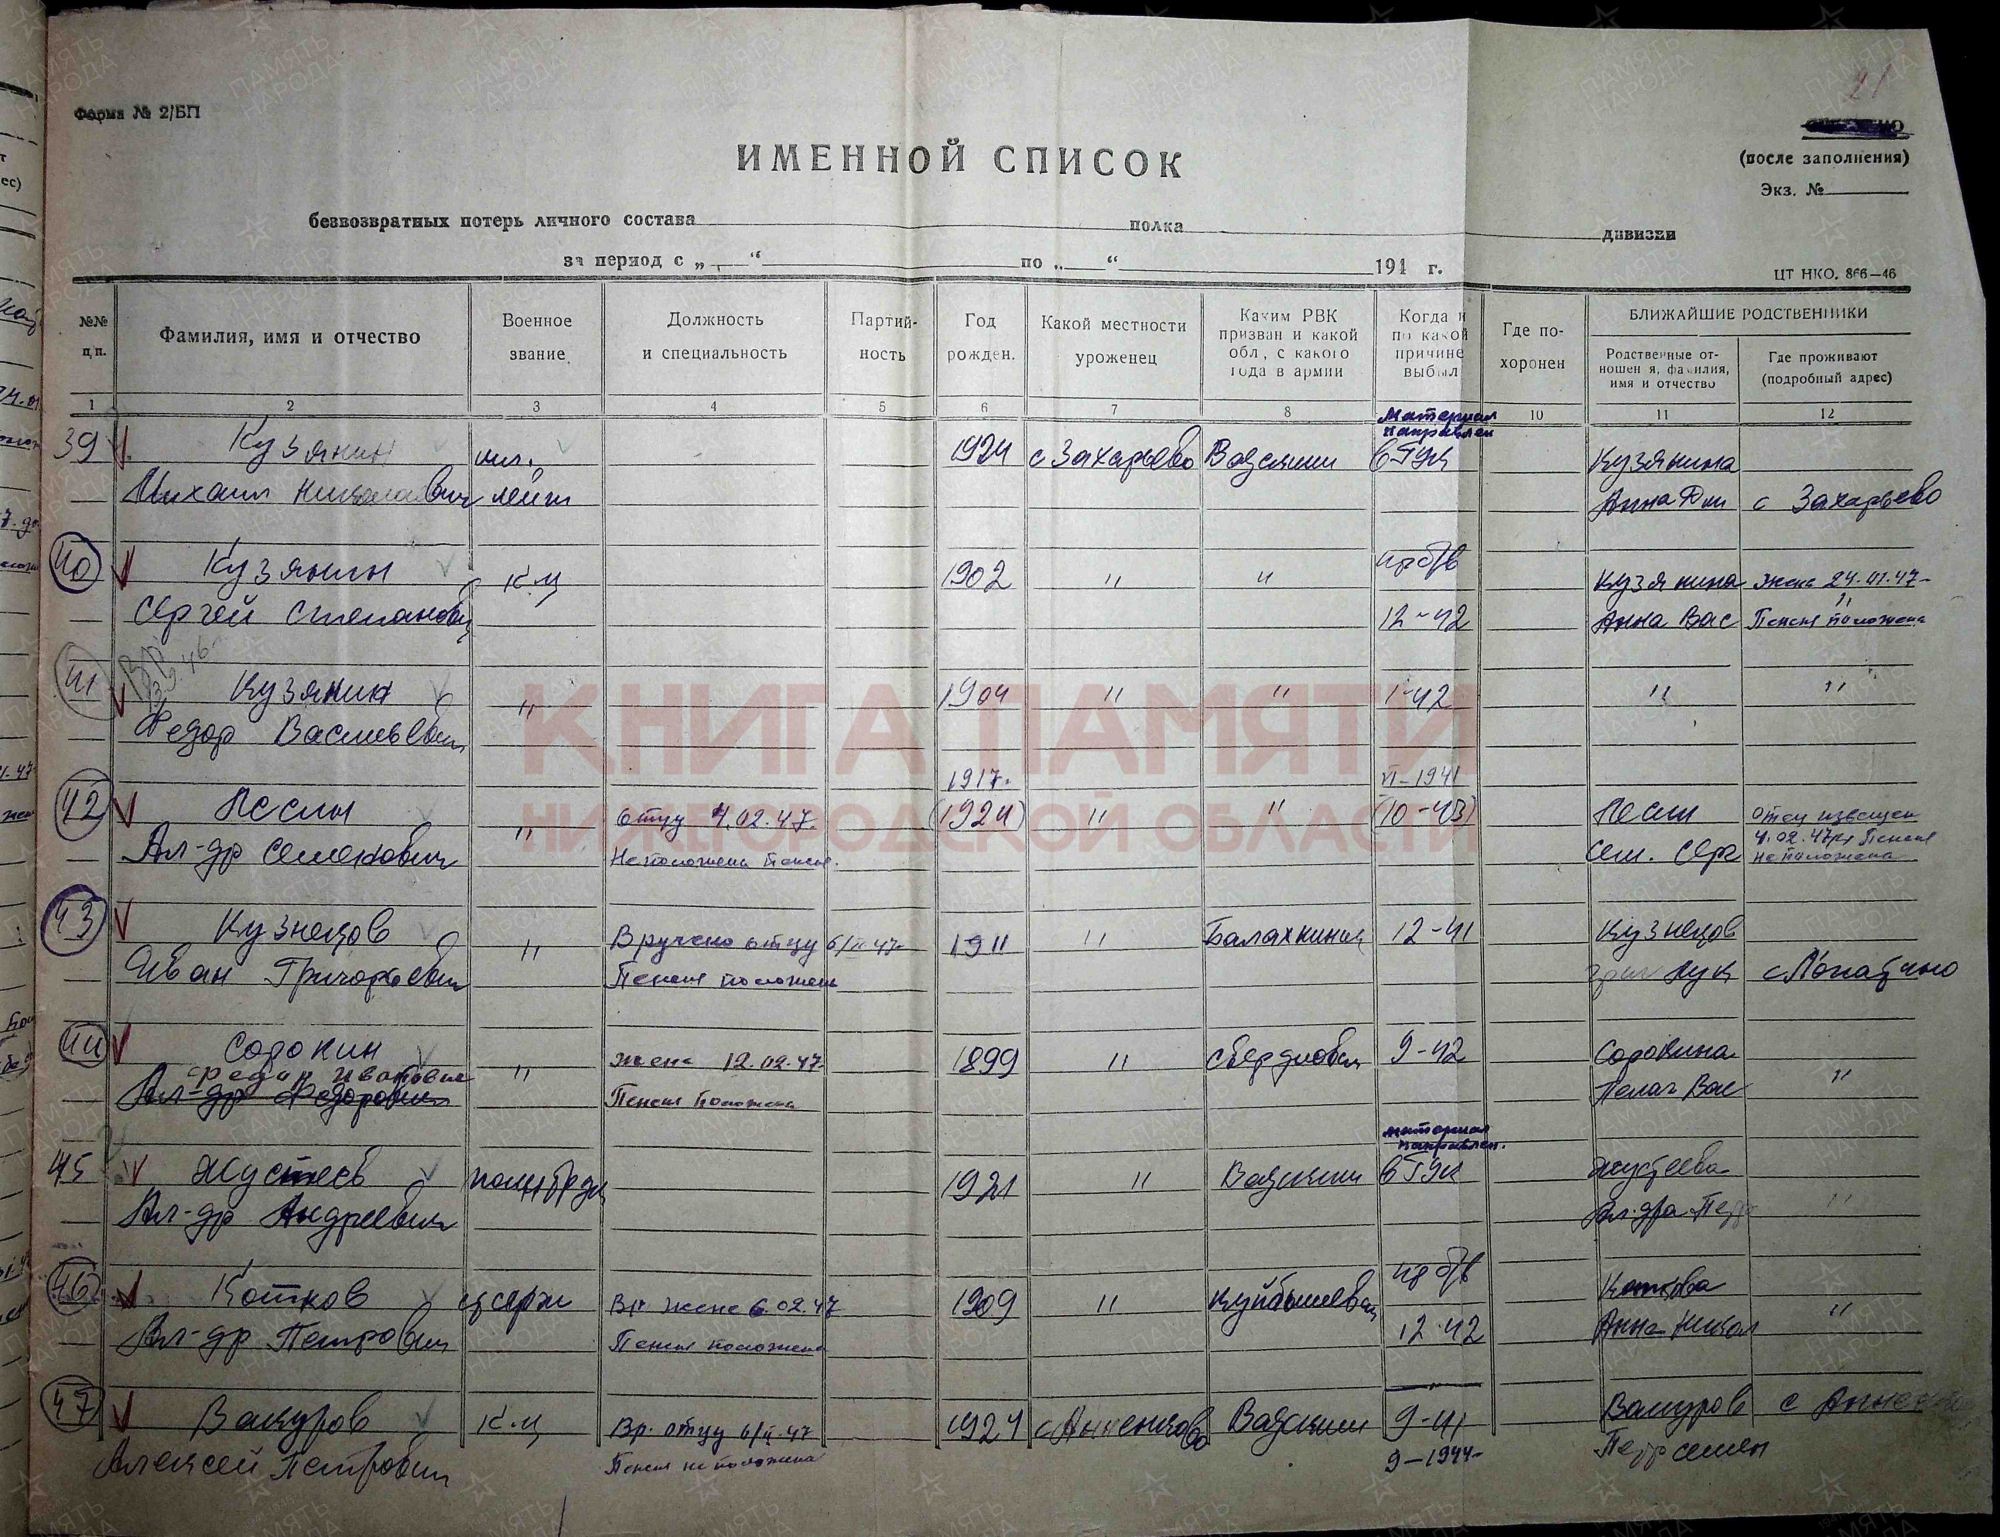 21
Форма № 2/БП
(после заполнения)
Экз. №
ИМЕННОЙ СПИСОК
безвозвратных потерь личного состава полка дивизии
за период с „ “ по „ “ 194 г.
ЦТ НКО. 866—46
№№ п.п.
Фамилия, имя и отчество
Военное звание
Должность и специальность
Партий-ность
Год рожден.
Какой местности уроженец
Каким РВК призван и какой обл, с какого года в армии
Когда и по какой причине выбыл
Где по-хоронен
БЛИЖАЙШИЕ РОДСТВЕННИКИ
Родственные от-ношения, фамилия, имя и отчество
Где проживают (подробный адрес)
1 2 3 4 5 6 7 8 10 11 12
Материал направлен
39 Кузянин мл. 1924 с Захарьево Вадский в ГУК Кузянина
Михаил Николаевич лейт Анна Дм с Захарьево
40 Кузянин К-ц 1902 " " пр б/в Кузянина жене 24.01.47
Сергей Степанович 12-42 Анна Вас Пенсия положена
41 Кузянин " 1904 " " 1-42 " "
Федор Васильевич
1917. VI-1941
42 Песин " отцу 4.02.47. (1924) " " (10-43) Песин Отец извещен
Ал-др Семенович Не положена пенсия. Сем. Серг 4.02.47 Пенсия не положена
43 Кузнецов " Вручено отцу 6/II 47 1911 " Балахнинск 12-41 Кузнецов
Иван Григорьевич Пенсия положена Лук с Лопатино
44 Сорокин " жене 12.02.47. 1899 " Свердловск 9-42 Сорокина "
Федор Иванович
Ал-др Федорович Пенсия положена Пелаг Вас
материал направлен.
45 Жустеев политрук 1921 " Вадский в ГУК Жустеева
Ал-др Андреевич Ал-дра Петр "
46 Котков сержант Вр жене 6.02.47 1909 " Куйбышевск пр б/в Коткова "
Ал-др Петрович Пенсия положена 12-42 Анна Никол
47 Вашуров К-ц Вр. отцу 6/II 47 1924 с Анненково Вадский 9-41 Вашуров с
Алексей Петрович Пенсия не положена 9-1944 Петр Семен
КНИГА ПАМЯТИ
НИЖЕГОРОДСКОЙ ОБЛАСТИ
ПАМЯТЬ НАРОДА